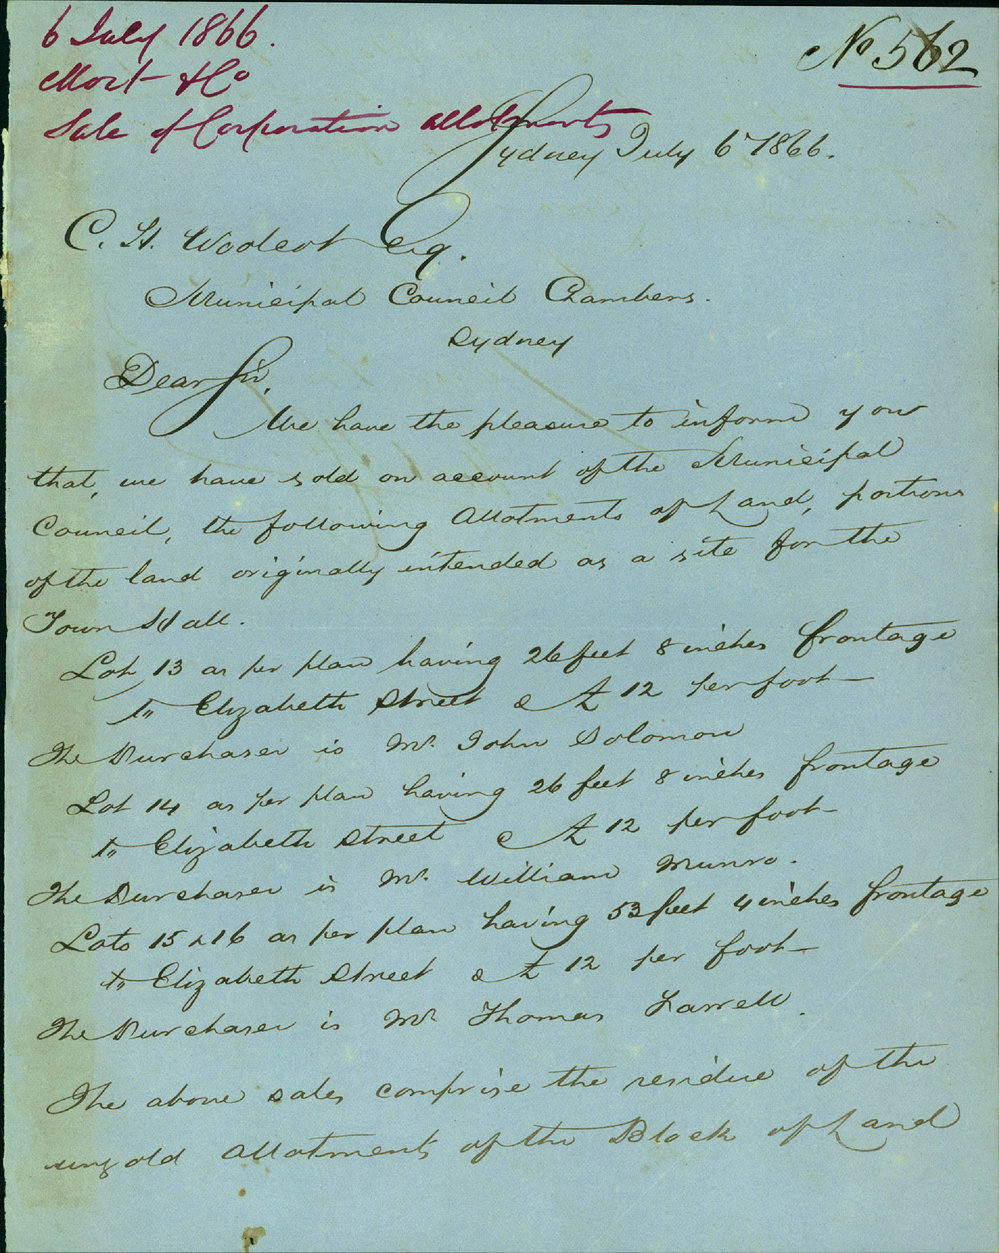 6 July 1866.
Mort & Co
Sale of Corporation allotments
No 562
Sydney July 6th 1866.
C. H. Woolcott Esq.
Municipal Council Chambers.
Sydney
Dear Sir,
We have the pleasure to inform you
that, we have sold on account of the Municipal
Council, the following Allotments of Land, portions
of the land originally intended as a site for the
Town Hall.
Lot 13 as per plan having 26 feet 8 inches frontage
to Elizabeth Street @ £12 per foot—
The Purchaser is Mr. John Solomon
Lot 14 as per plan having 26 feet 8 inches frontage
to Elizabeth Street @ £12 per foot—
The Purchaser is Mr. William Munro.
Lots 15 & 16 as per plan having 53 feet 4 inches frontage
to Elizabeth Street @ £12 per foot—
The Purchaser is Mr Thomas Farrell.
The above sales comprise the residue of the
unsold Allotments of the Block of Land